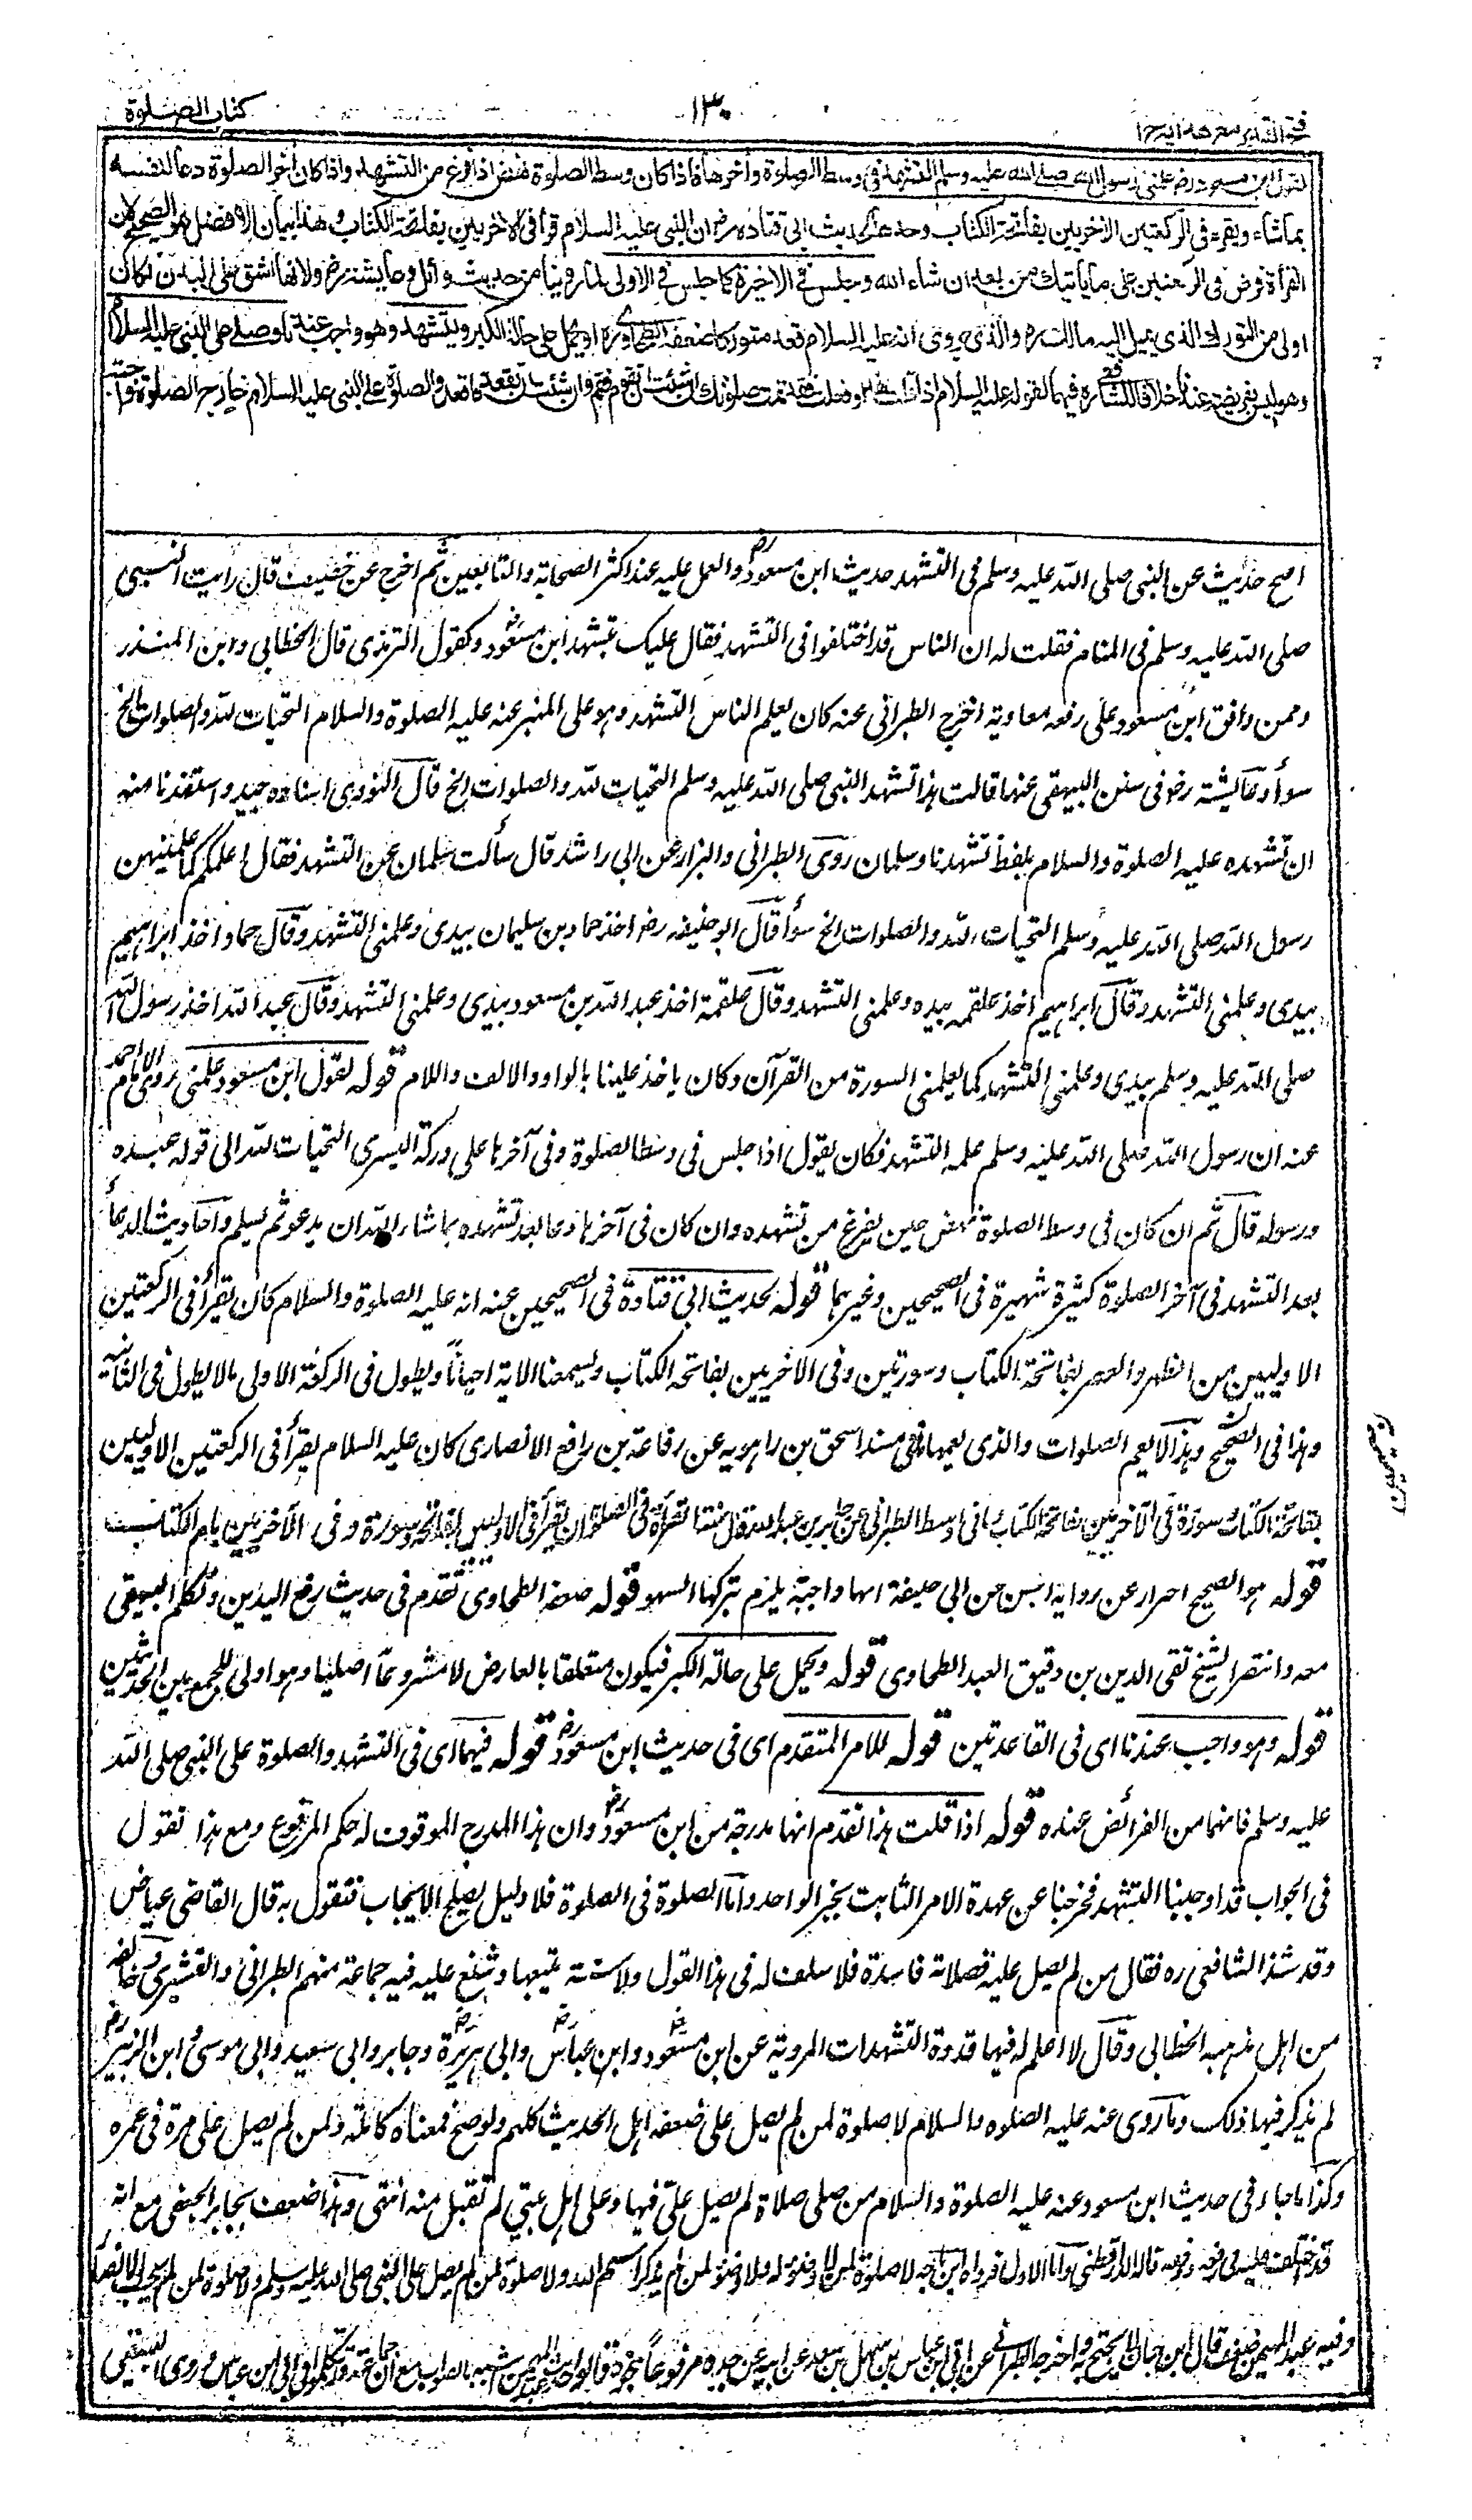 فتح القدير مع هداية ج١
١٣٠
كتاب الصلوة
لقول ابن مسعود رض علمني رسول الله صلى الله عليه وسلم التشهد في وسط الصلوة وآخرها فاذا كان وسط الصلوة نهض اذا فرغ من التشهد واذا كان آخر الصلوة دعا لنفسه
بما شاء ويقرء في الركعتين الاخريين بفاتحة الكتاب وحدها لحديث ابي قتاده رض ان النبي عليه السلام قرأ في الاخريين بفاتحة الكتاب وهذا بيان الافضل هو الصحيح لان
القرأة فرض في الركعتين على ما يأتيك من بعد ان شاء الله وجلس في الاخيرة كما جلس في الاولى لما روينا من حديث وائل وعايشة رض ولانها اشق على البدن فكان
اولى من التورك الذي يميل اليه مالك ره والذي يروى انه عليه السلام قعد متوركا ضعفه الطحاوي ره او يحمل على حالة الكبر ويتشهد وهو واجب عندنا وصلى على النبي عليه السلام
وهو ليس بفريضة عندنا خلافا للشافعي ره فيهما لقوله عليه السلام اذا قلت هذا او فعلت فقد تمت صلوتك ان شئت ان تقوم فقم وان شئت ان تقعد فاقعد والصلوة على النبي عليه السلام خارج الصلوة واجبة
اصح حديث عن النبي صلى الله عليه وسلم في التشهد حديث ابن مسعود رض والعمل عليه عند اكثر الصحابة والتابعين ثم اخرج عن خصيف قال رايت النبي
صلى الله عليه وسلم في المنام فقلت له ان الناس قد اختلفوا في التشهد فقال عليك بتشهد ابن مسعود وكقول الترمذي قال الخطابي وابن المنذر
وممن وافق ابن مسعود على رفعه معاوية اخرج الطبراني عنه كان يعلم الناس التشهد وهو على المنبر عنه عليه الصلوة والسلام التحيات لله والصلوات الخ
سوأ وعايشة رض في سنن البيهقي عنها قالت هذا تشهد النبي صلى الله عليه وسلم التحيات لله والصلوات الخ قال النووي اسناده جيد واستفدنا منه
ان تشهده عليه الصلوة والسلام بلفظ تشهدنا وسلمان روى الطبراني والبزار عن ابي راشد قال سألت سلمان عن التشهد فقال اعلمكم كما علمنيهن
رسول الله صلى الله عليه وسلم التحيات لله والصلوات الخ سوأ قال ابو حنيفه رض اخذ حماد بن سليمان بيدي وعلمني التشهد وقال حماد اخذ ابراهيم
بيدي وعلمني التشهد وقال ابراهيم اخذ علقمه بيده وعلمني التشهد وقال علقمة اخذ عبد الله بن مسعود بيدي وعلمني التشهد وقال عبد الله اخذ رسول الله
صلى الله عليه وسلم بيدي وعلمني التشهد كما يعلمني السورة من القرآن وكان ياخذ علينا بالواو والالف واللام قوله لقول ابن مسعود علمني روى الامام احمد
عنه ان رسول الله صلى الله عليه وسلم علمه التشهد فكان يقول اذا جلس في وسط الصلوة وفي آخرها على وركه اليسرى التحيات لله الى قوله عبده
ورسوله قال ثم ان كان في وسط الصلوة نهض حين يفرغ من تشهده وان كان في آخرها دعا بعد تشهده بما شاء الله ان يدعو ثم يسلم واحاديث الدعأ
بعد التشهد في آخر الصلوة كثيرة شهيرة في الصحيحين وغيرهما قوله لحديث ابي قتادة في الصحيحين عنه انه عليه الصلوة والسلام كان يقرأ في الركعتين
الاوليين من الظهر والعصر بفاتحة الكتاب وسورتين وفي الاخريين بفاتحة الكتاب ويسمعنا الاية احيانًا ويطول في الركعة الاولى مالا يطول في الثانية
وهذا في الصبح وهذا لا يعم الصلوات والذي يعمها ما في مسند اسحق بن راهويه عن رفاعة بن رافع الانصاري كان عليه السلام يقرأ في الركعتين الاوليين
بفاتحة الكتاب وسورة وفي الآخريين بفاتحة الكتاب وما في اوسط الطبراني عن جابر بن عبد الله قال سنة القرأة في الصلوة ان يقرأ في الاوليين بام القرآن وسورة وفي الآخريين بام الكتاب
قوله هو الصحيح احراز عن رواية الحسن عن ابي حنيفة انها واجبة يلزم بتركها السهو قوله ضعفه الطحاوي تقدم في حديث رفع اليدين وتكلم البيهقي
معه وانتصر الشيخ تقي الدين بن دقيق العيد الطحاوي قوله ويحمل على حالة الكبر فيكون متعلقا بالعارض لا مشروعًا اصليا وهو اولى للجمع بين الحديثين
قوله وهو واجب عندنا اى في القاعدتين قوله للامر المتقدم اى في حديث ابن مسعود رض قوله فيهما اى في التشهد والصلوة على النبي صلى الله
عليه وسلم فانهما من الفرائض عنده قوله اذا قلت هذا تقدم انها مدرجة من ابن مسعود رض وان هذا المدرج الموقوف له حكم المرفوع ومع هذا نقول
في الجواب قد اوجبنا التشهد فخرجنا عن عهدة الامر الثابت بخبر الواحد واما الصلوة في الصلوة فلا دليل يصلح الايجاب فنقول به قال القاضي عياض
وقد شذ الشافعي ره فقال من لم يصل عليه فصلاته فاسدة فلا سلف له في هذا القول ولا سنة يتبعها وشنع عليه فيه جماعة منهم الطبراني والقشيري وخالفه
من اهل مذهبه الخطابي وقال لا اعلم له فيها قدوة التشهدات المروية عن ابن مسعود رض وابن عباس رض وابي هريرة رض وجابر وابي سعيد وابي موسى وابن الزبير رض
لم يذكر فيها ذلك وما روى عنه عليه الصلوه والسلام لا صلوة لمن لم يصل علي ضعفه اهل الحديث كلهم ولو صح فمعناه كاملة ولمن لم يصل على مرة في عمره
وكذا ما جاء في حديث ابن مسعود عنه عليه الصلوة والسلام من صلى صلاة لم يصل عليّ فيها وعلى اهل بيتي لم تقبل منه انتهى وهذا ضعف بجابر الجعفي مع انه
قد اختلف عليه في رفعه ووقفه قاله الدارقطني واما الاول فرواه ابن ماجه لا صلوة لمن لا وضوء له ولا وضوء لمن لم يذكر اسم الله ولا صلوة لمن لم يصل على النبي صلى الله عليه وسلم ولا صلوة لمن لم يحب الانصار
وفيه عبد المهيمن ضعيف قال ابن حبان لا يحتج به واخرجه الطبراني عن ابي بن عباس بن سهل بن سعد عن ابيه عن جده مرفوعًا بنحوه قالوا حديث عبد المهيمن اشبه بالصواب مع ان جماعة تكلموا في ابي بن عباس وروى البيهقي